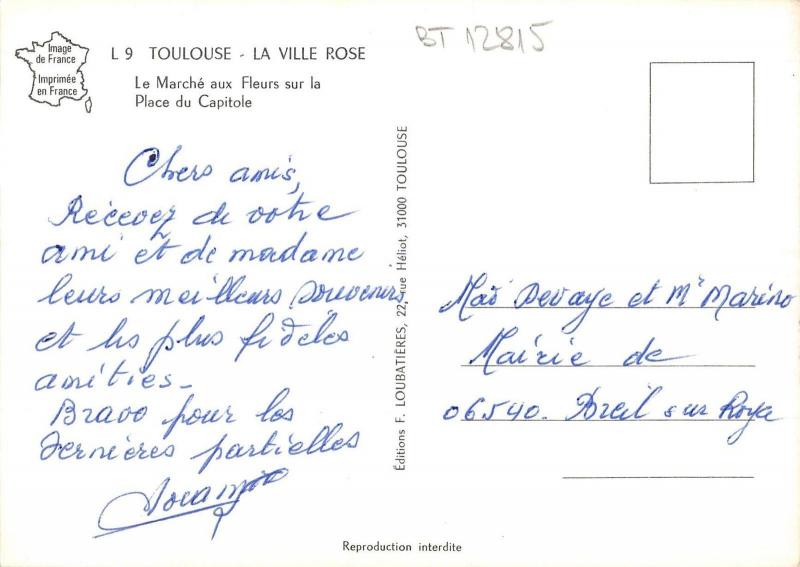 Image
de France
Imprimée
en France
L 9 TOULOUSE - LA VILLE ROSE
Le Marché aux Fleurs sur la
Place du Capitole
BT 12815
Chers amis,
Recevez de votre
ami et de madame
leurs meilleurs souvenirs
et les plus fidèles
amitiés -
Bravo pour les
dernières partielles
Éditions F. LOUBATIÈRES, 22, rue Héliot, 31000 TOULOUSE
Devaye et Mr Marino
Mairie de
06540. Breil sur Roya
Reproduction interdite